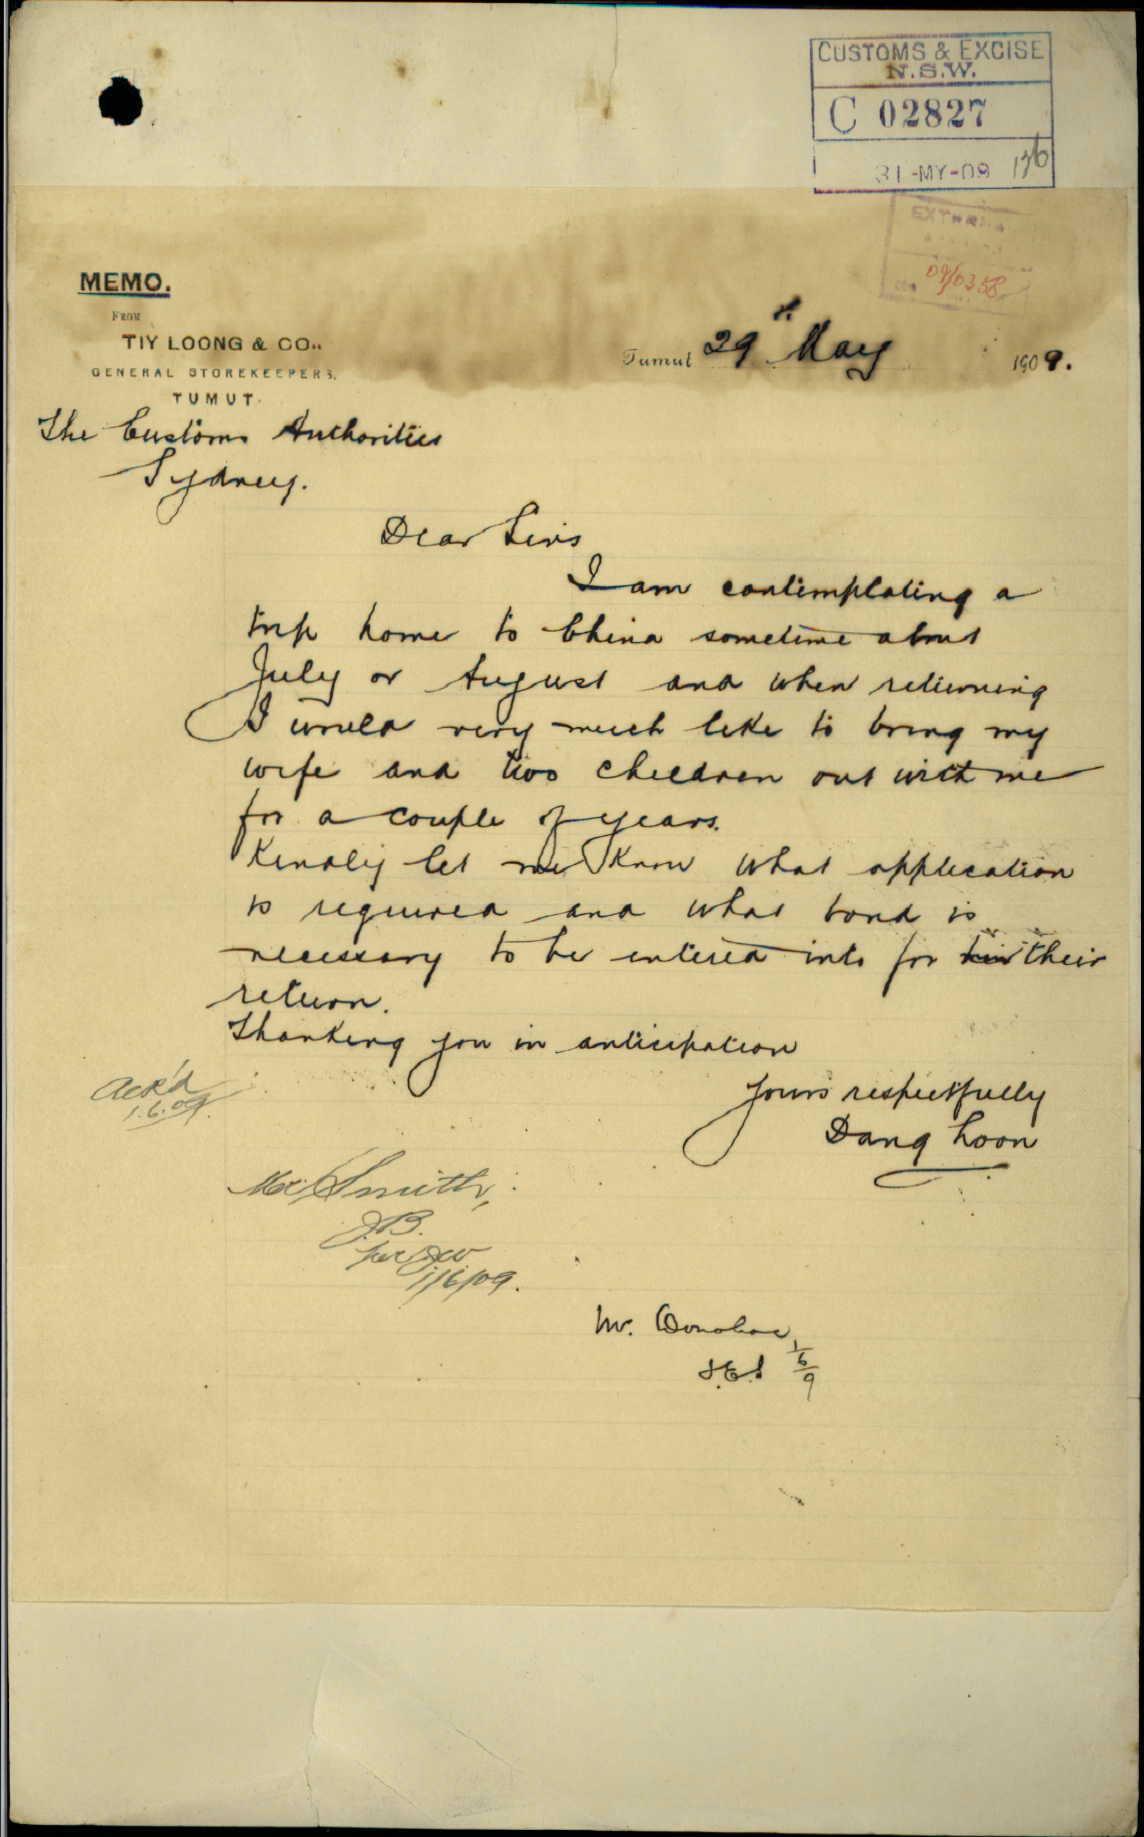 CUSTOMS & EXCISE
N.S.W.
C 02827
31-MY-09
MEMO.
FROM
TIY LOONG & CO.,
GENERAL STOREKEEPERS,
TUMUT.
Tumut 29th May 1909.
The Customs Authorities
Sydney.
Dear Sirs
I am contemplating a
trip home to China sometime about
July or August and when returning
I would very much like to bring my
wife and two children out with me
for a couple of years.
Kindly let me know what application
is required and what bond is
necessary to be entered into for their
return.
Thanking you in anticipation
Yours respectfully
Dang Loon
Ack'd
1.6.09.
Mr Smith,
J.B.
1/6/09.
Mr. Donohoe
1/6/9